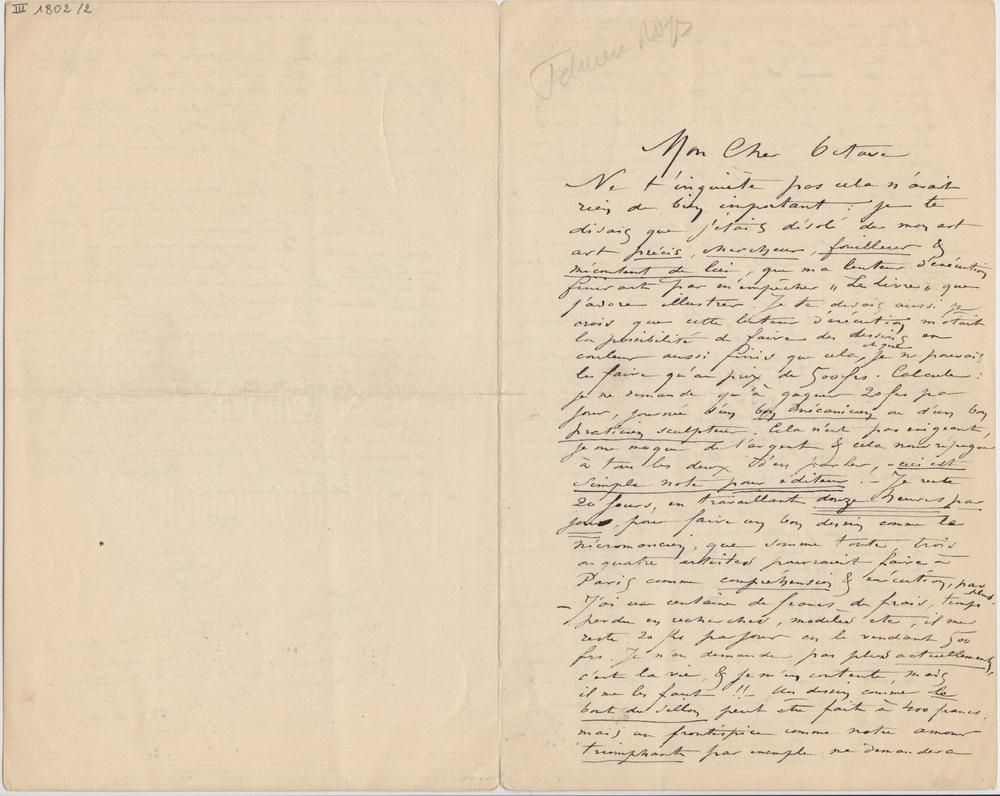 III 1802/2
Mon Cher Octave
Ne t'inquiète pas cela n'avait
rien de bien important : je te
disais que j'étais désolé de mon art
art précis, chercheur, fouilleur &
mécontent de lui, que ma lenteur d'exécution
finirait par m'empêcher „Le Livre„ que
j'adore illustrer. Je te disais aussi je
crois que cette lenteur d'exécution m'ôtait
la possibilité de faire des dessins en
couleur aussi finis que cela, & que je ne pouvais
les faire qu'au prix de 500 frs. Calcule :
je ne demande qu'à gagner 20 frs par
jour, journée d'un bon mécanicien ou d'un bon
praticien sculpteur. Cela n'est pas exigeant,
je me moque de l'argent & cela nous répugne
à tous les deux d'en parler, – ceci est
simple note pour éditeur. – Je reste
20 jours, en travaillant douze heures par
jour, pour faire un bon dessin comme le
nicromancien, que somme toute, trois
ou quatre artistes pourraient faire à
Paris comme compréhension & exécution, pas plus.
– J'ai une centaine de francs de frais, temps
perdu en recherches, modèles etc, il me
reste 20 frs par jour en le vendant 500
frs. Je n'en demande pas plus actuellement,
c'est la vie, & je m'en contente, mais
il me les faut !! – Un dessin comme le
bout du sillon peut être fait à 400 francs,
mais un frontispice comme notre amour
triomphant par exemple ne demandera